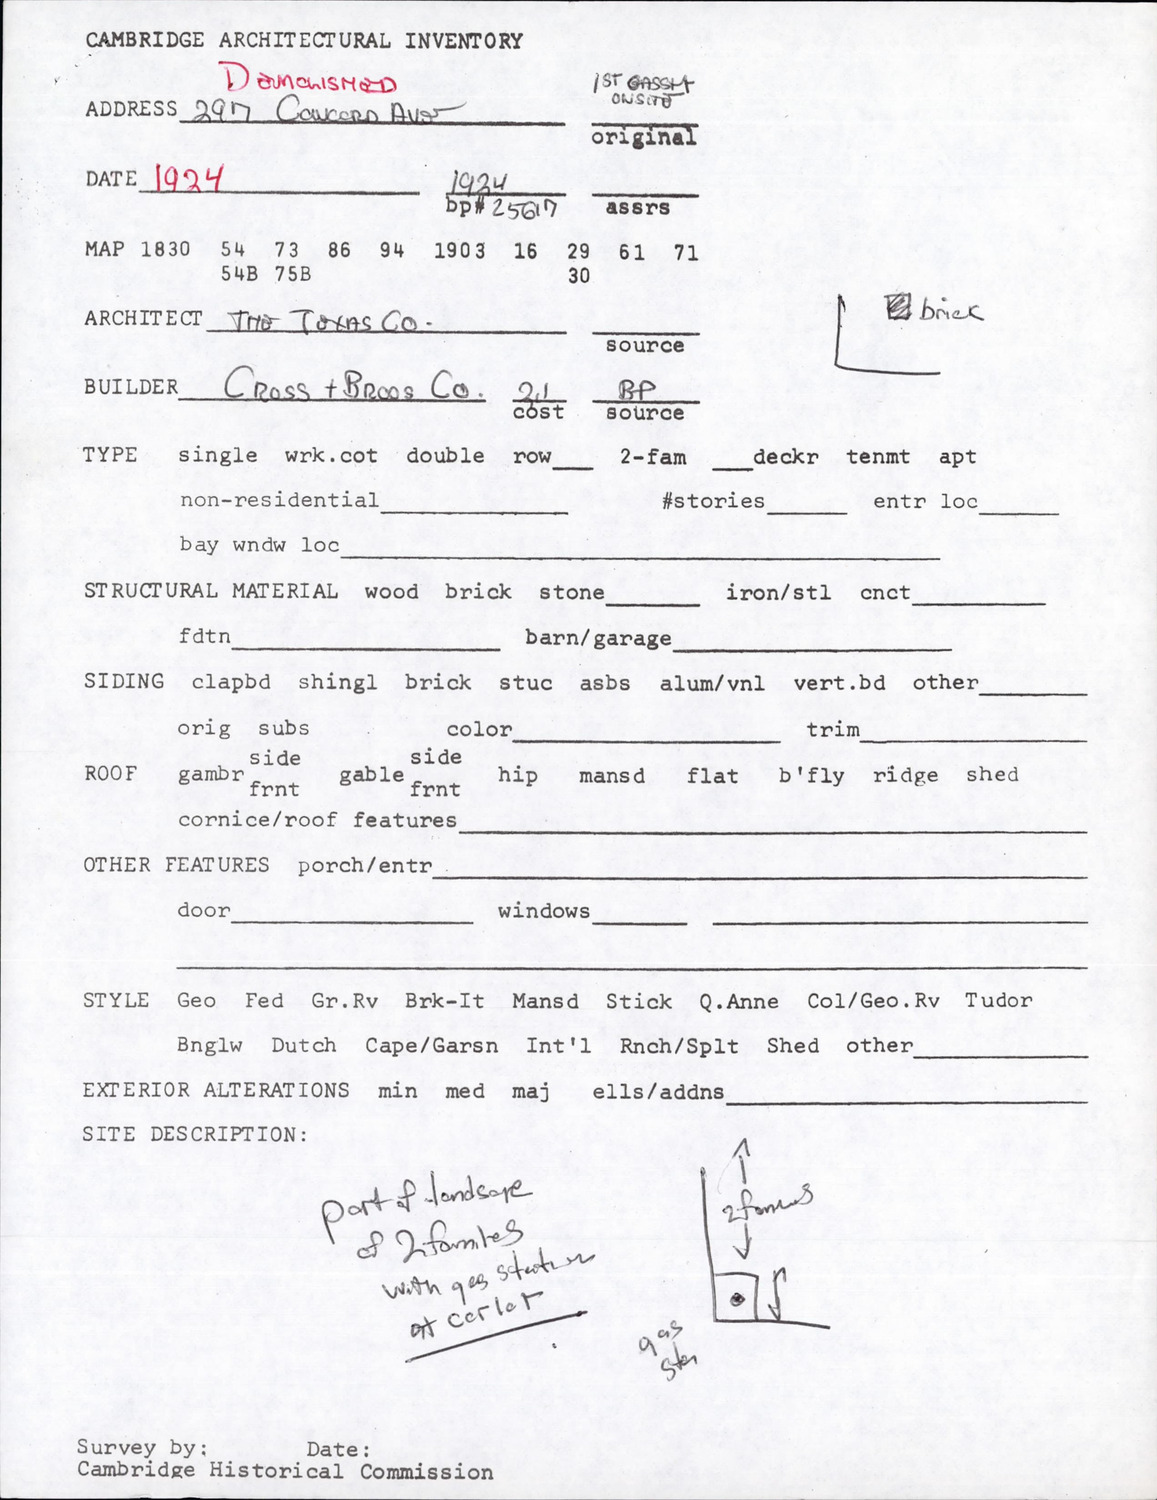 CAMBRIDGE ARCHITECTURAL INVENTORY
DEMOLISHED
1ST GASSTA
ONSITE
ADDRESS 297 CONCORD AVE
original
DATE 1924 1924
bp# 25617 assrs
MAP 1830 54 73 86 94 1903 16 29 61 71
54B 75B 30
brick
ARCHITECT THE TEXAS CO.
source
BUILDER CROSS + BROOS CO. 2,1 BP
cost source
TYPE single wrk.cot double row___ 2-fam ___deckr tenmt apt
non-residential #stories entr loc
bay wndw loc
STRUCTURAL MATERIAL wood brick stone iron/stl cnct
fdtn barn/garage
SIDING clapbd shingl brick stuc asbs alum/vnl vert.bd other
orig subs color trim
side side
ROOF gambr gable hip mansd flat b'fly ridge shed
frnt frnt
cornice/roof features
OTHER FEATURES porch/entr
door windows
STYLE Geo Fed Gr.Rv Brk-It Mansd Stick Q.Anne Col/Geo.Rv Tudor
Bnglw Dutch Cape/Garsn Int'l Rnch/Splt Shed other
EXTERIOR ALTERATIONS min med maj ells/addns
SITE DESCRIPTION:
part of landscape
of 2 families
with gas station
at
2 families
gas
sta
Survey by: Date:
Cambridge Historical Commission